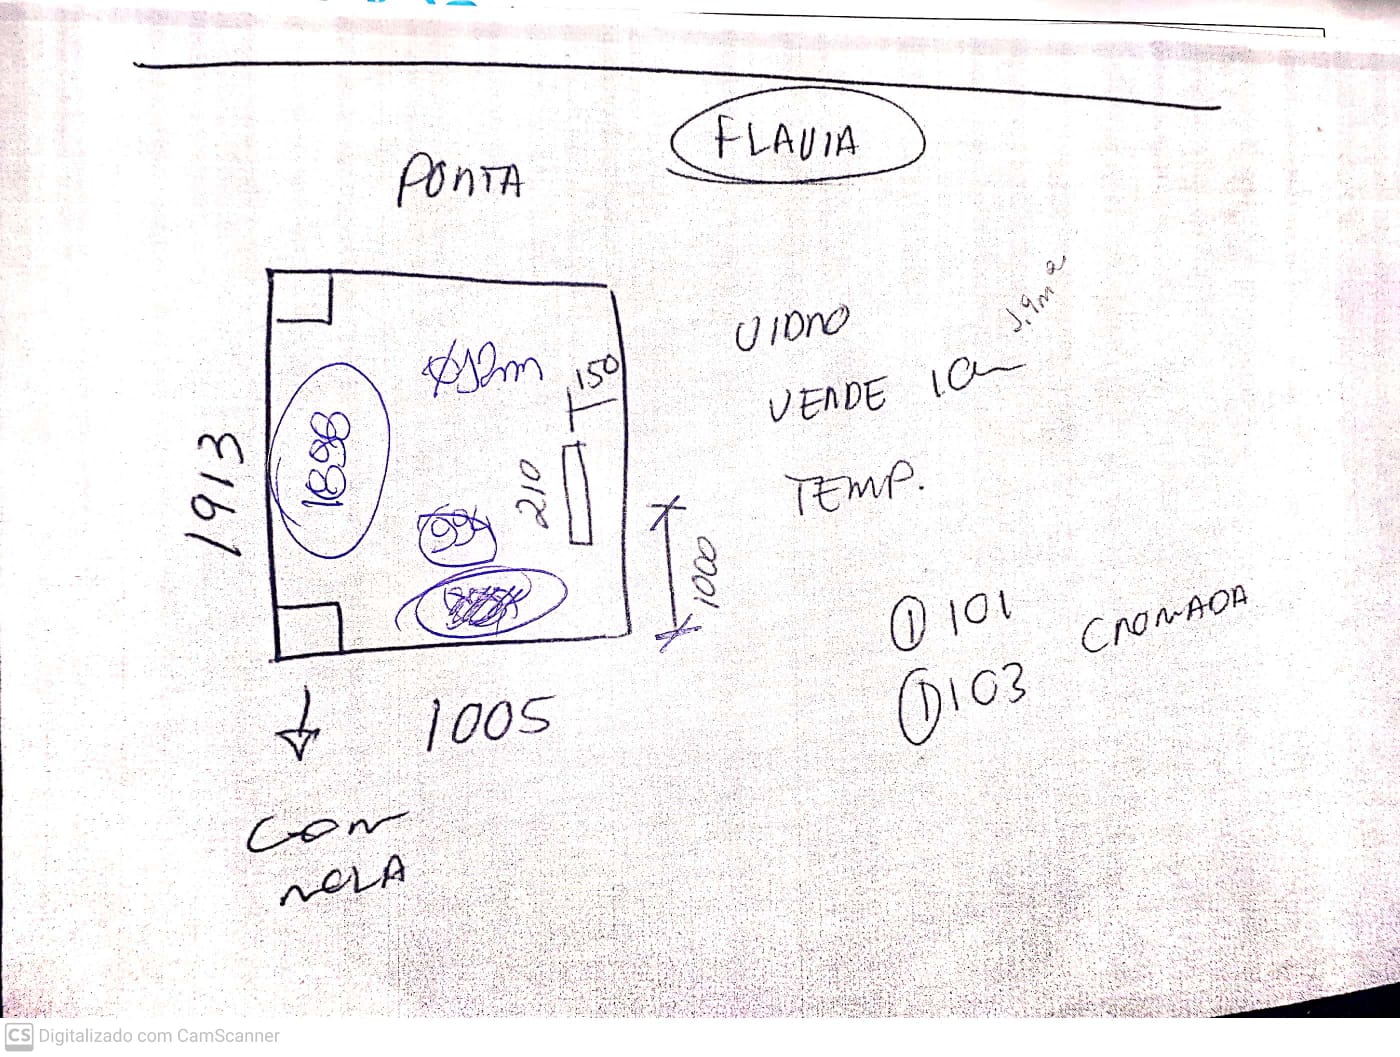 FLAVIA
PORTA
VIDRO
1.9m²
VERDE 1.0m
TEMP.
Ø12m
150
1898
1913
210
994
1000
① 101
① 103 CROMADA
1005
COM
MOLA
CS Digitalizado com CamScanner